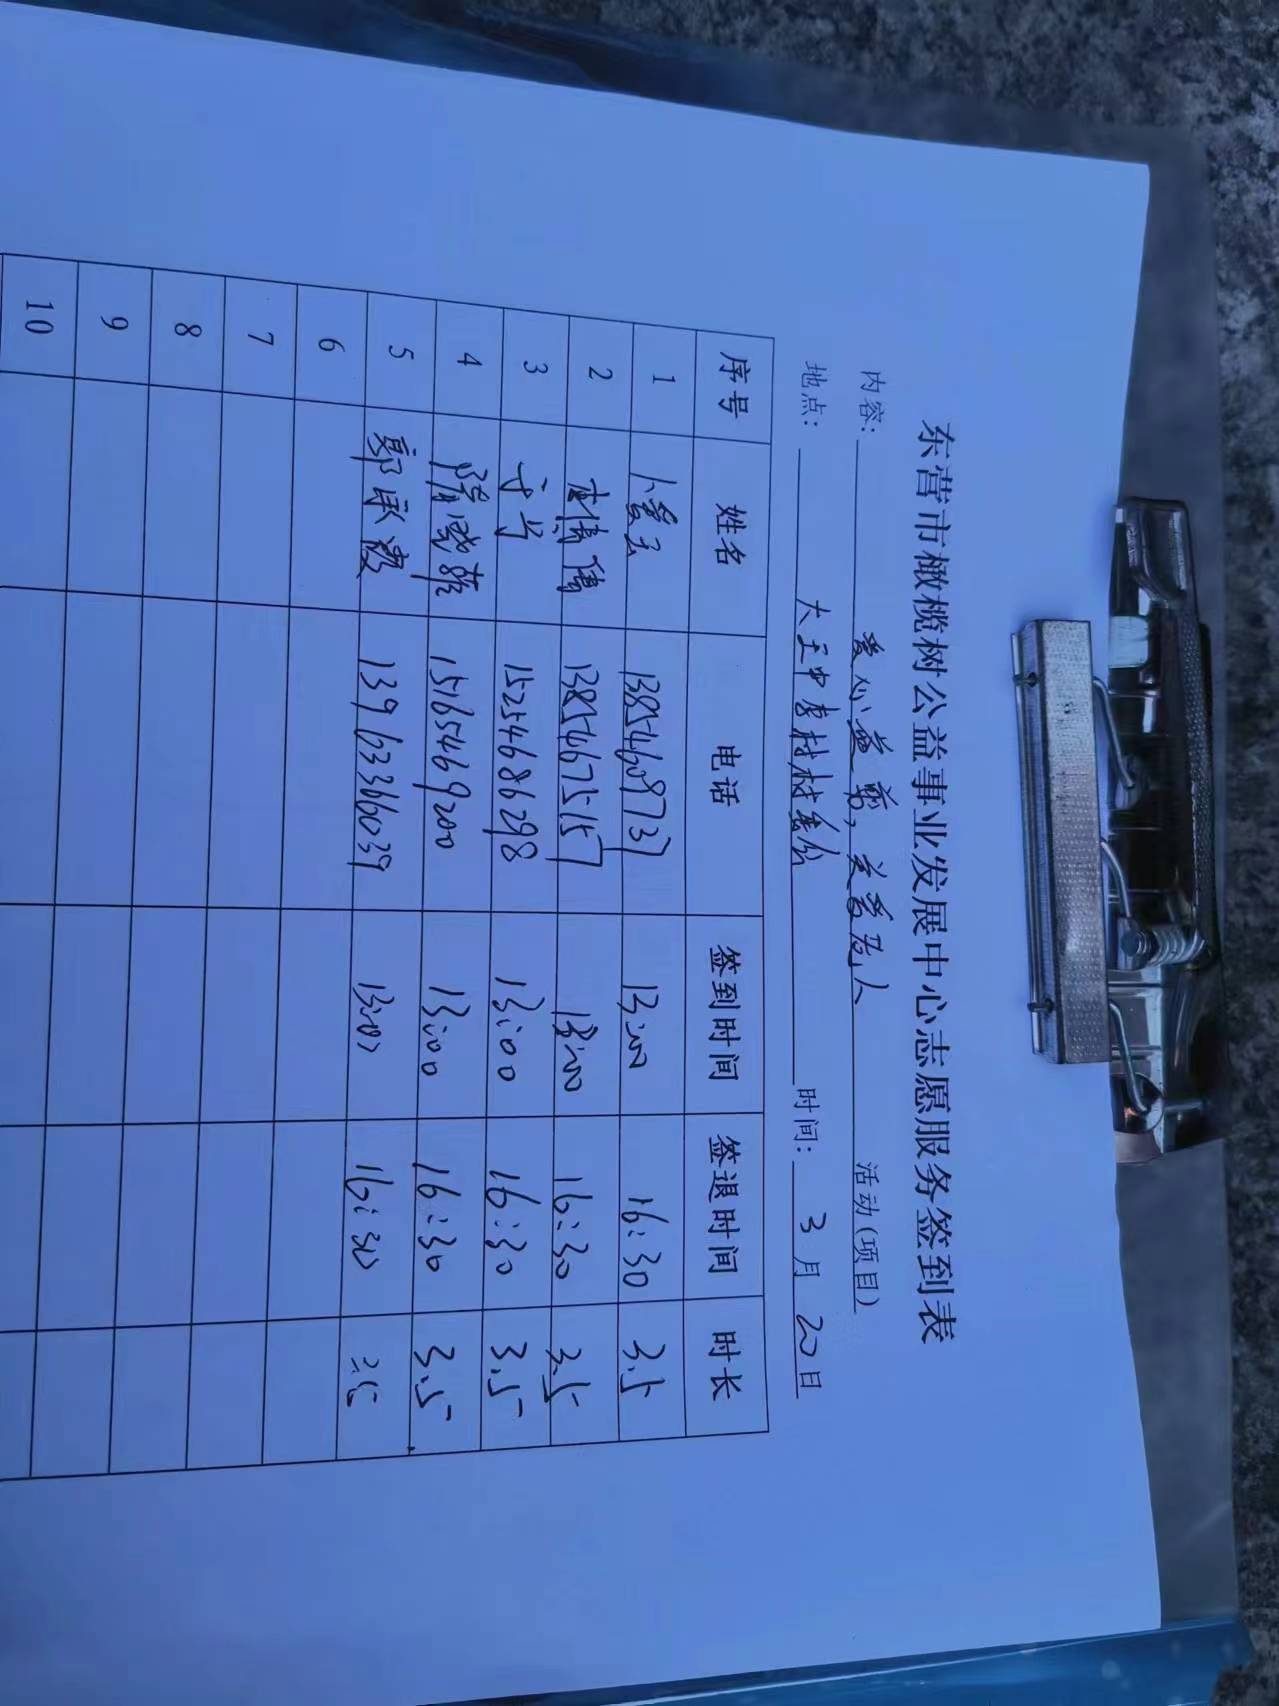 东营市橄榄树公益事业发展中心志愿服务签到表
内容: 爱心益剪,关爱老人 活动(项目)
地点: 大王中李村村委会 时间: 3月20日
序号 姓名 电话 签到时间 签退时间 时长
1 13854609737 13:00 16:30 3.5
2 13854675157 13:00 16:30 3.5
3 15254686298 13:00 16:30 3.5
4 隋晓华 15165469200 13:00 16:30 3.5
5 郭承 13963366039 13:00 16:30 3.5
6
7
8
9
10